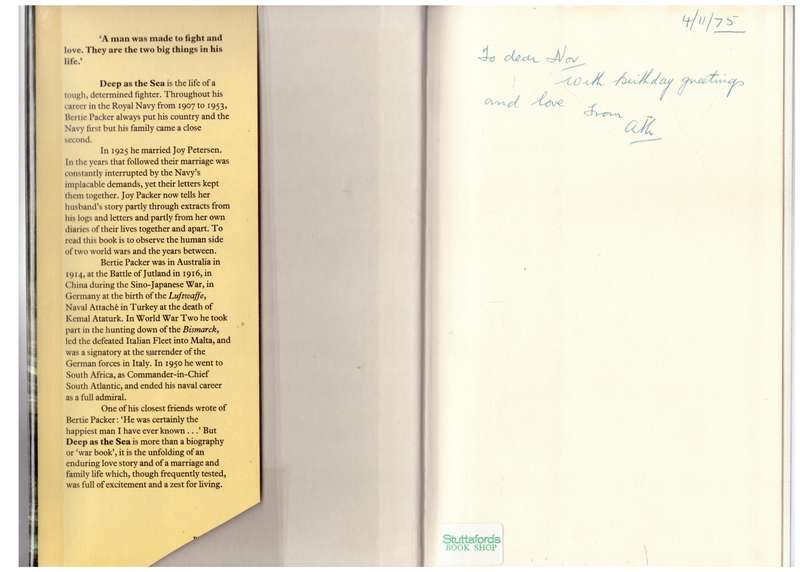 'A man was made to fight and
love. They are the two big things in his
life.'
Deep as the Sea is the life of a
tough, determined fighter. Throughout his
career in the Royal Navy from 1907 to 1953,
Bertie Packer always put his country and the
Navy first but his family came a close
second.
In 1925 he married Joy Petersen.
In the years that followed their marriage was
constantly interrupted by the Navy's
implacable demands, yet their letters kept
them together. Joy Packer now tells her
husband's story partly through extracts from
his logs and letters and partly from her own
diaries of their lives together and apart. To
read this book is to observe the human side
of two world wars and the years between.
Bertie Packer was in Australia in
1914, at the Battle of Jutland in 1916, in
China during the Sino-Japanese War, in
Germany at the birth of the Luftwaffe,
Naval Attaché in Turkey at the death of
Kemal Ataturk. In World War Two he took
part in the hunting down of the Bismarck,
led the defeated Italian Fleet into Malta, and
was a signatory at the surrender of the
German forces in Italy. In 1950 he went to
South Africa, as Commander-in-Chief
South Atlantic, and ended his naval career
as a full admiral.
One of his closest friends wrote of
Bertie Packer: 'He was certainly the
happiest man I have ever known . . .' But
Deep as the Sea is more than a biography
or 'war book', it is the unfolding of an
enduring love story and of a marriage and
family life which, though frequently tested,
was full of excitement and a zest for living.
4/11/75
To dear Nov
with birthday greetings
and love from
Ath
Stuttafords
BOOK SHOP